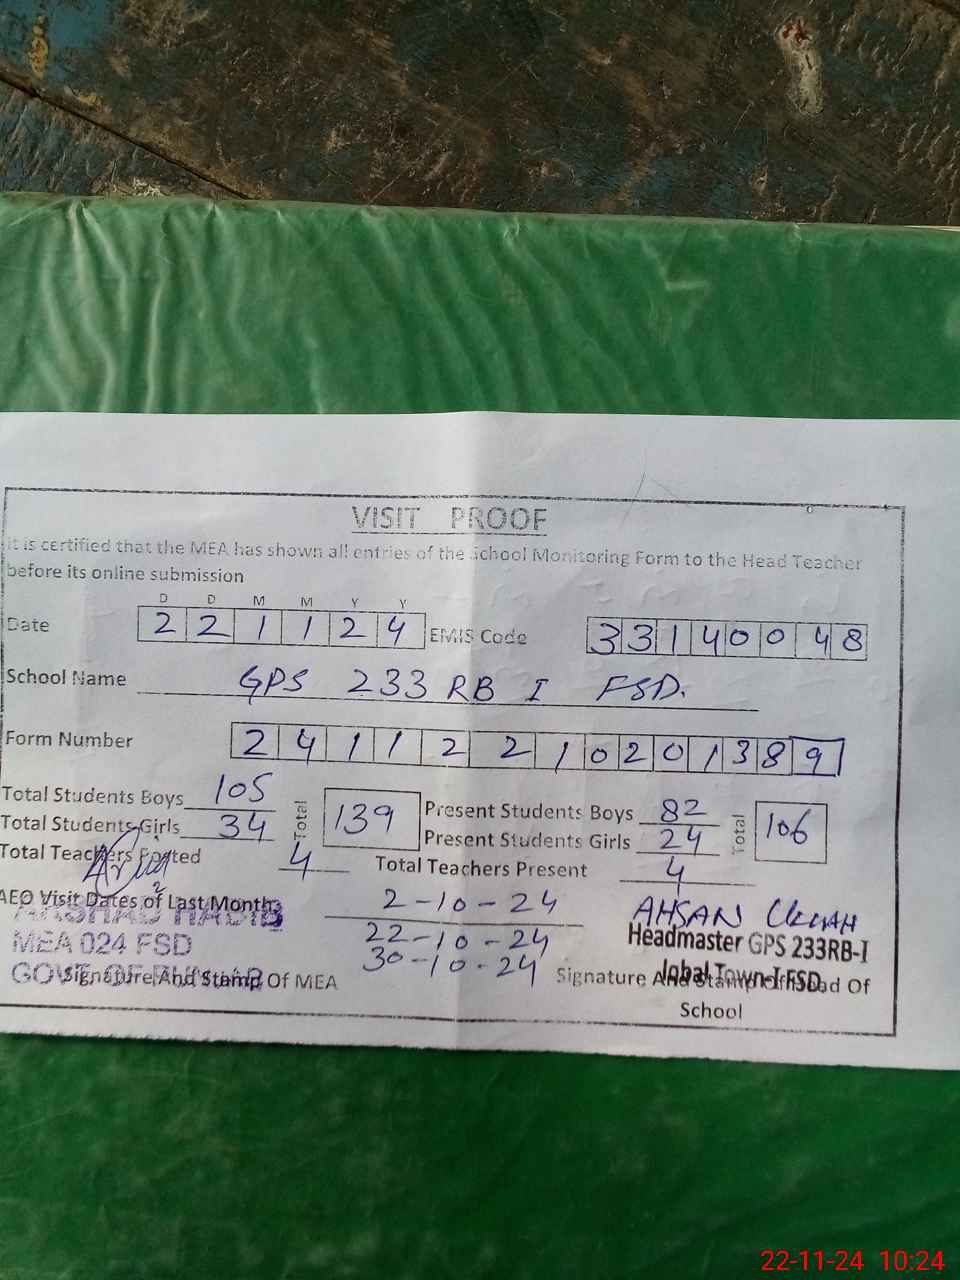 VISIT PROOF
It is certified that the MEA has shown all entries of the School Monitoring Form to the Head Teacher
before its online submission
D D M M Y Y
Date 2 2 1 1 2 4 EMIS Code 3 3 1 4 0 0 4 8
School Name GPS 233 RB I FSD.
Form Number 2 4 1 1 2 2 1 0 2 0 1 3 8 9
Total Students Boys 105 Total 139 Present Students Boys 82 Total 106
Total Students Girls 34 Present Students Girls 24
Total Teachers Posted 4 Total Teachers Present 4
AEO Visit Dates of Last Month 2-10-24
22-10-24
30-10-24
ARSHAD HABIB
MEA 024 FSD
GOVT OF PUNJAB
Signature And Stamp Of MEA
AHSAN Ullah
Headmaster GPS 233RB-I
Iqbal Town-I FSD.
Signature And Stamp Of Head Of
School
22-11-24 10:24